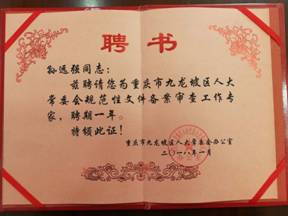 聘书
孙远强同志：
兹聘请您为重庆市九龙坡区人大
常委会规范性文件备案审查工作专
家，聘期一年。
特颁此证！
重庆市九龙坡区人大常委会办公室
二〇一八年一月